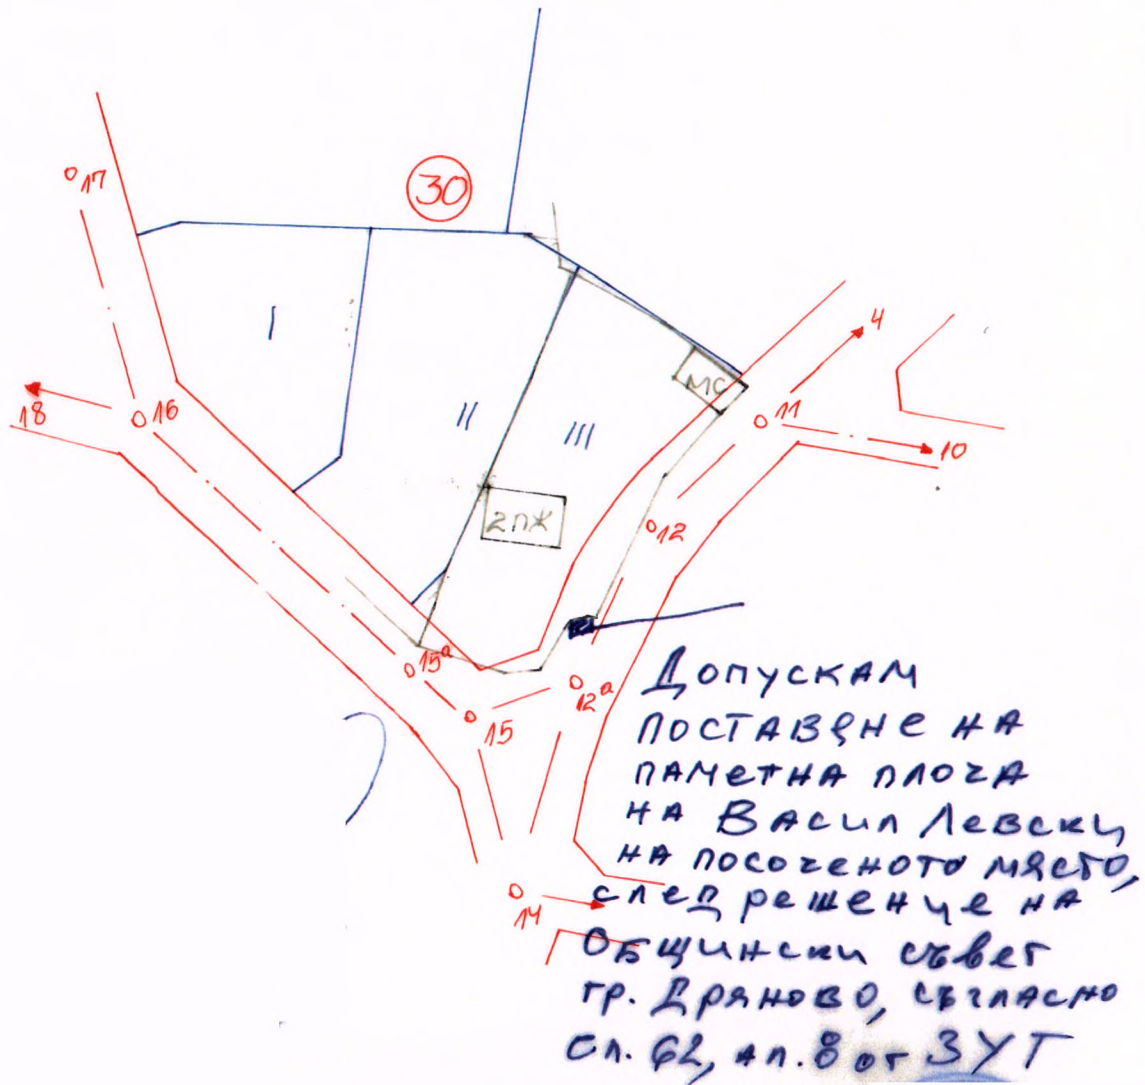 30
17
I
4
МС
18
16
II
III
11
10
2ПЖ
12
15а
12а
15
14
Допускам
поставяне на
паметна плоча
на Васил Левски
на посоченото място,
след решение на
Общински съвет
гр. Дряново, съгласно
сл. 62, ал. 8 от ЗУТ